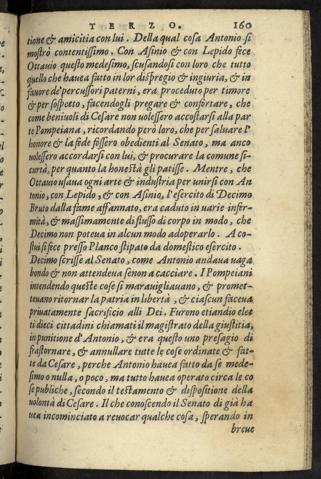 TERZO. 160
tione & amicitia con lui. Della qual cosa Antonio si
mostrò contentissimo. Con Asinio & con Lepido fice
Ottauio questo medesimo, scusandosi con loro che tutto
quello che hauea fatto in lor dispregio & ingiuria, & in
fauore de' percussori paterni, era proceduto per timore
& per sospetto, facendogli pregare & confortare, che
come beniuoli di Cesare non uolessero accostarsi alla par
te Pompeiana, ricordando però loro, che per saluare l'
honore & la fede fossero obedienti al Senato, ma anco
uolessero accordarsi con lui, & procurare la comune si-
curtà, per quanto la honestà gli patisse. Mentre, che
Ottauio usaua ogni arte & industria per unirsi con An
tonio, con Lepido, & con Asinio, l'esercito di Decimo
Bruto dalla fame affannato, era caduto in uarie infir-
mità, & massimamente di flusso di corpo in modo, che
Decimo non poteua in alcun modo adoperarlo. A co-
stui si fice presso Planco stipato da domestico esercito.
Decimo scrisse al Senato, come Antonio andaua uaga
bondo & non attendeua senon a cacciare. I Pompeiani
intendendo queste cose si marauigliauano, & promet-
teuano ritornar la patria in libertà, & ciascun faceua
priuatamente sacrificio alli Dei. Furono etiandio elet
ti dieci cittadini chiamati il magistrato della giustitia,
in punitione d'Antonio, & era questo uno presagio di
frastornare, & annullare tutte le cose ordinate & fat-
te da Cesare, perche Antonio hauea fatto da se mede-
simo o nulla, o poco, ma tutto hauea operato circa le co
se publiche, secondo il testamento & dispositione della
uolontà di Cesare. Il che conoscendo il Senato di già ha
uea incominciato a reuocar qualche cosa, sperando in
breue